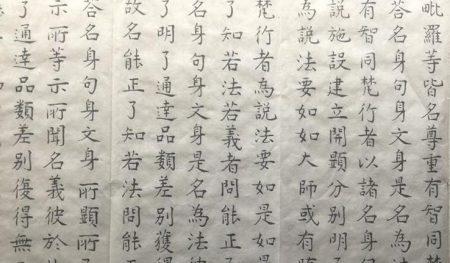 毗羅等皆名尊重有智同梵
答名身句身文身是名為法
有智同梵行者以諸名身
說施設建立開顯分別明
為說法要如如大師或有
梵行者為說法要如是如是
了知若法若義者問能正了
名身句身文身是名為法
了明了通達品類差別獲得
故名能正了知若法問能正
答名身句身文身所顯所
示所等示所聞名義彼於
了通達品類差別復得無